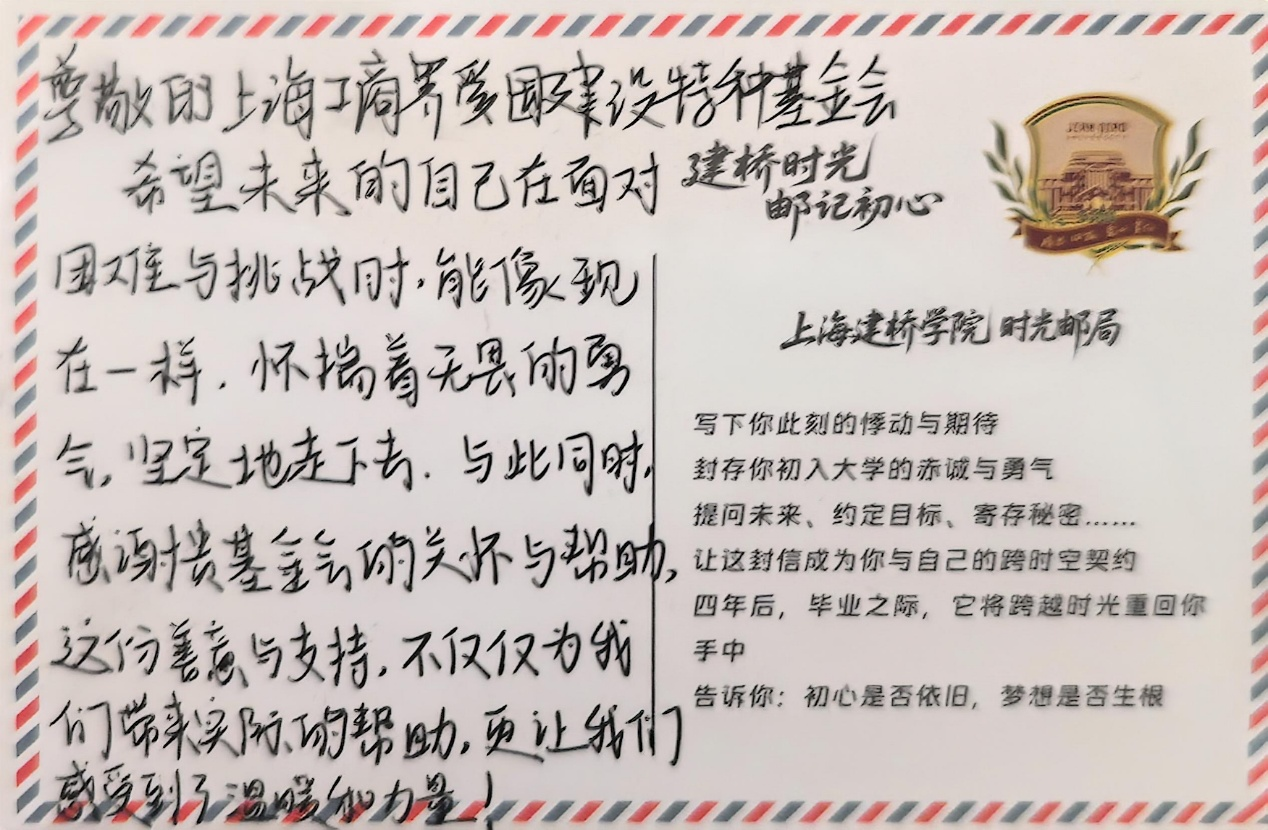 尊敬的上海工商界爱国建设特种基金会
希望未来的自己在面对
困难与挑战时,能像现
在一样,怀揣着无畏的勇
气,坚定地走下去.与此同时,
感谢贵基金会的关怀与帮助,
这份善意与支持,不仅仅为我
们带来实际的帮助,更让我们
感受到了温暖和力量!
建桥时光
邮记初心
上海建桥学院 时光邮局
写下你此刻的悸动与期待
封存你初入大学的赤诚与勇气
提问未来、约定目标、寄存秘密……
让这封信成为你与自己的跨时空契约
四年后，毕业之际，它将跨越时光重回你
手中
告诉你：初心是否依旧，梦想是否生根